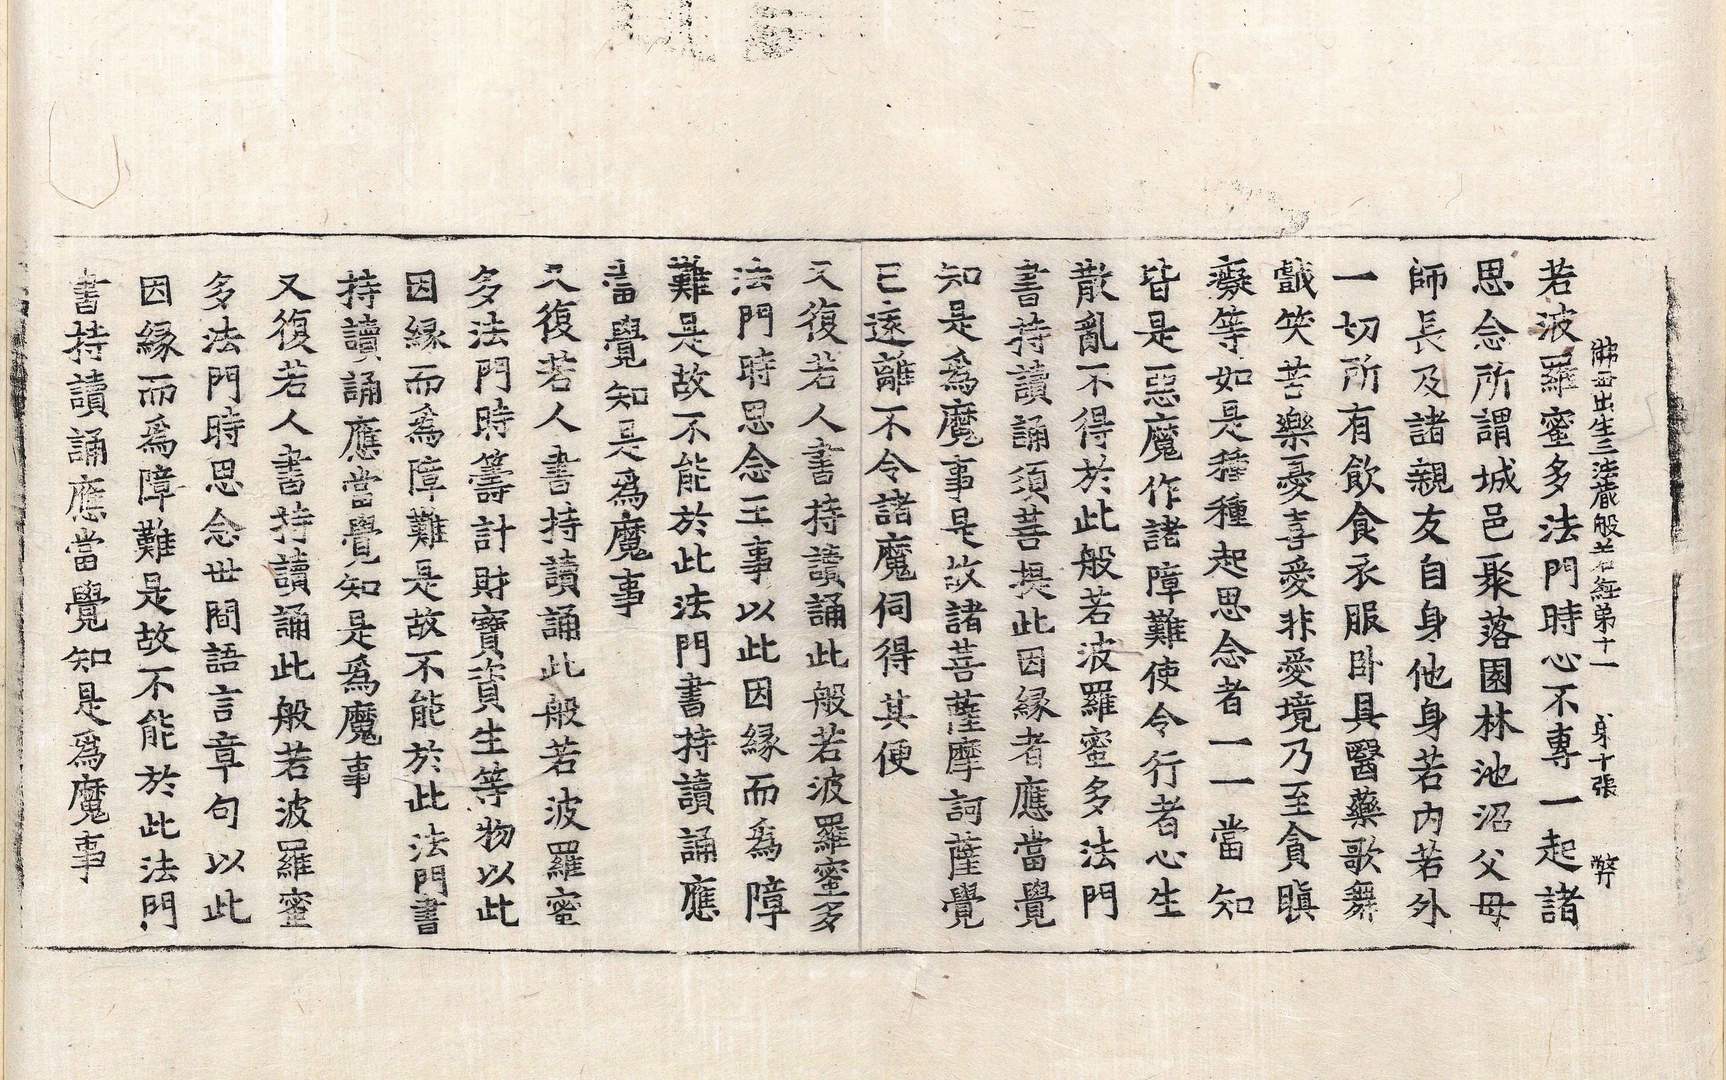 佛母出生三法藏般若經第十一 第十張 弊
若波羅蜜多法門時心不專一起諸
思念所謂城邑聚落園林池沼父母
師長及諸親友自身他身若內若外
一切所有飲食衣服卧具醫藥歌舞
戲笑苦樂憂喜愛非愛境乃至貪瞋
癡等如是種種起思念者一一當知
皆是惡魔作諸障難使令行者心生
散亂不得於此般若波羅蜜多法門
書持讀誦須菩提此因緣者應當覺
知是為魔事是故諸菩薩摩訶薩覺
已遠離不令諸魔伺得其便
又復若人書持讀誦此般若波羅蜜多
法門時思念王事以此因緣而為障
難是故不能於此法門書持讀誦應
當覺知是為魔事
又復若人書持讀誦此般若波羅蜜
多法門時籌計財寶資生等物以此
因緣而為障難是故不能於此法門書
持讀誦應當覺知是為魔事
又復若人書持讀誦此般若波羅蜜
多法門時思念世間語言章句以此
因緣而為障難是故不能於此法門
書持讀誦應當覺知是為魔事